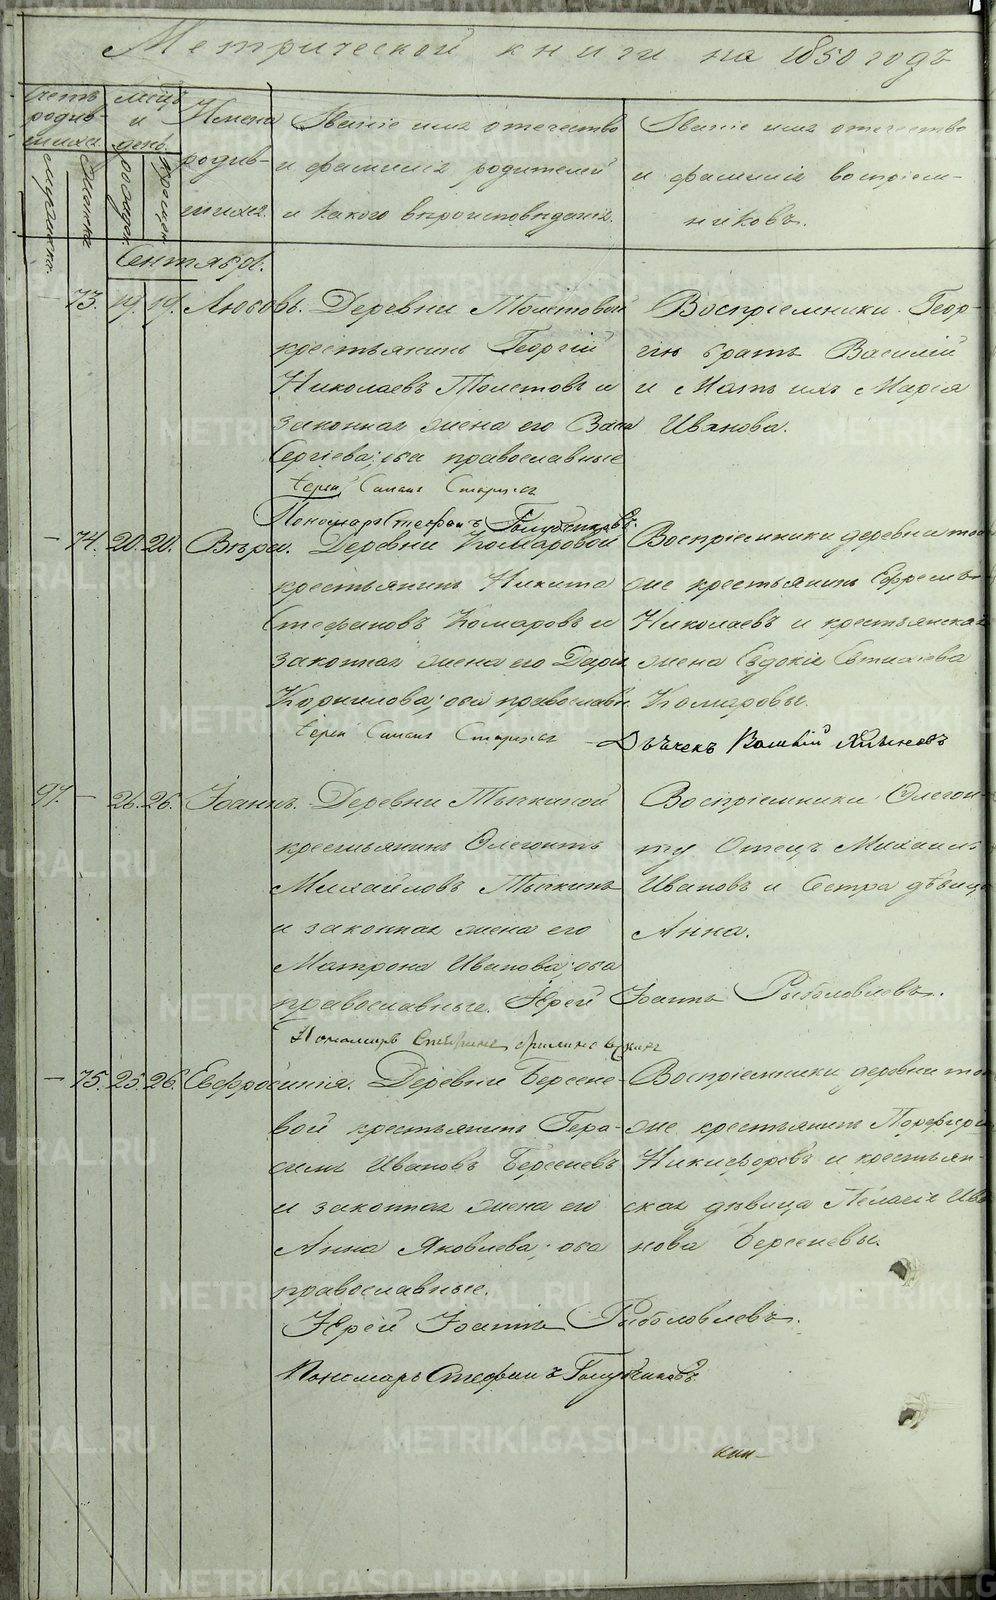 Метрической книги на 1850 годъ
Счетъ родив-шихся
мужеска.
женска
мѣсцъ и день.
рожден.
крещен.
Имена
родив-
шихся.
Званіе имя отечество
и фамилія родителей
и какого вѣроисповѣданія.
Званіе имя отечество
и фамилія воспріем-
никовъ.
Сентябрь.
— 73. 19. 19. Любовь. Деревни Толстовой
крестьянинъ Георгій
Николаевъ Толстовъ и
законная жена его Васса
Сергіева; оба православные
Іерей Симонъ
Пономарь Стефанъ Голубчиковъ.
Воспріемники Геор-
гію братъ Василій
и Мать ихъ Марѳа
Иванова.
— 74. 20. 20. Вѣра. Деревни Комаровой
крестьянинъ Никита
Стефановъ Комаровъ и
законная жена его Дарья
Корнилова; оба православн.
Іерей Симонъ
Воспріемники деревни той
же крестьянинъ Ефремъ
Николаевъ и крестьянская
жена Евдокія Евтихіева
Комаровы.
Дьячекъ
97. — 26. 26. Іоаннъ. Деревни Тыпкиной
крестьянинъ Олегонтъ
Михайловъ Тыпкинъ
и законная жена его
Матрона Иванова; оба
православные. Іерей Іоаннъ Рыболовлевъ.
Пономарь
Воспріемники Олегон-
ту Отецъ Михаилъ
Ивановъ и Сестра дѣвица
Анна.
— 75. 25. 26. Евфросинія. Деревни Берсене-
вой крестьянинъ Гера-
симъ Ивановъ Берсеневъ
и законная жена его
Анна Яковлева; оба
православные.
Іерей Іоаннъ Рыболовлевъ.
Пономарь Стефанъ Голубчиковъ
Воспріемники деревни той
же крестьянинъ Порфирій
Никифоровъ и крестьян-
ская дѣвица Пелагія Ива
нова Берсеневы.
METRIKI.GASO-URAL.RU